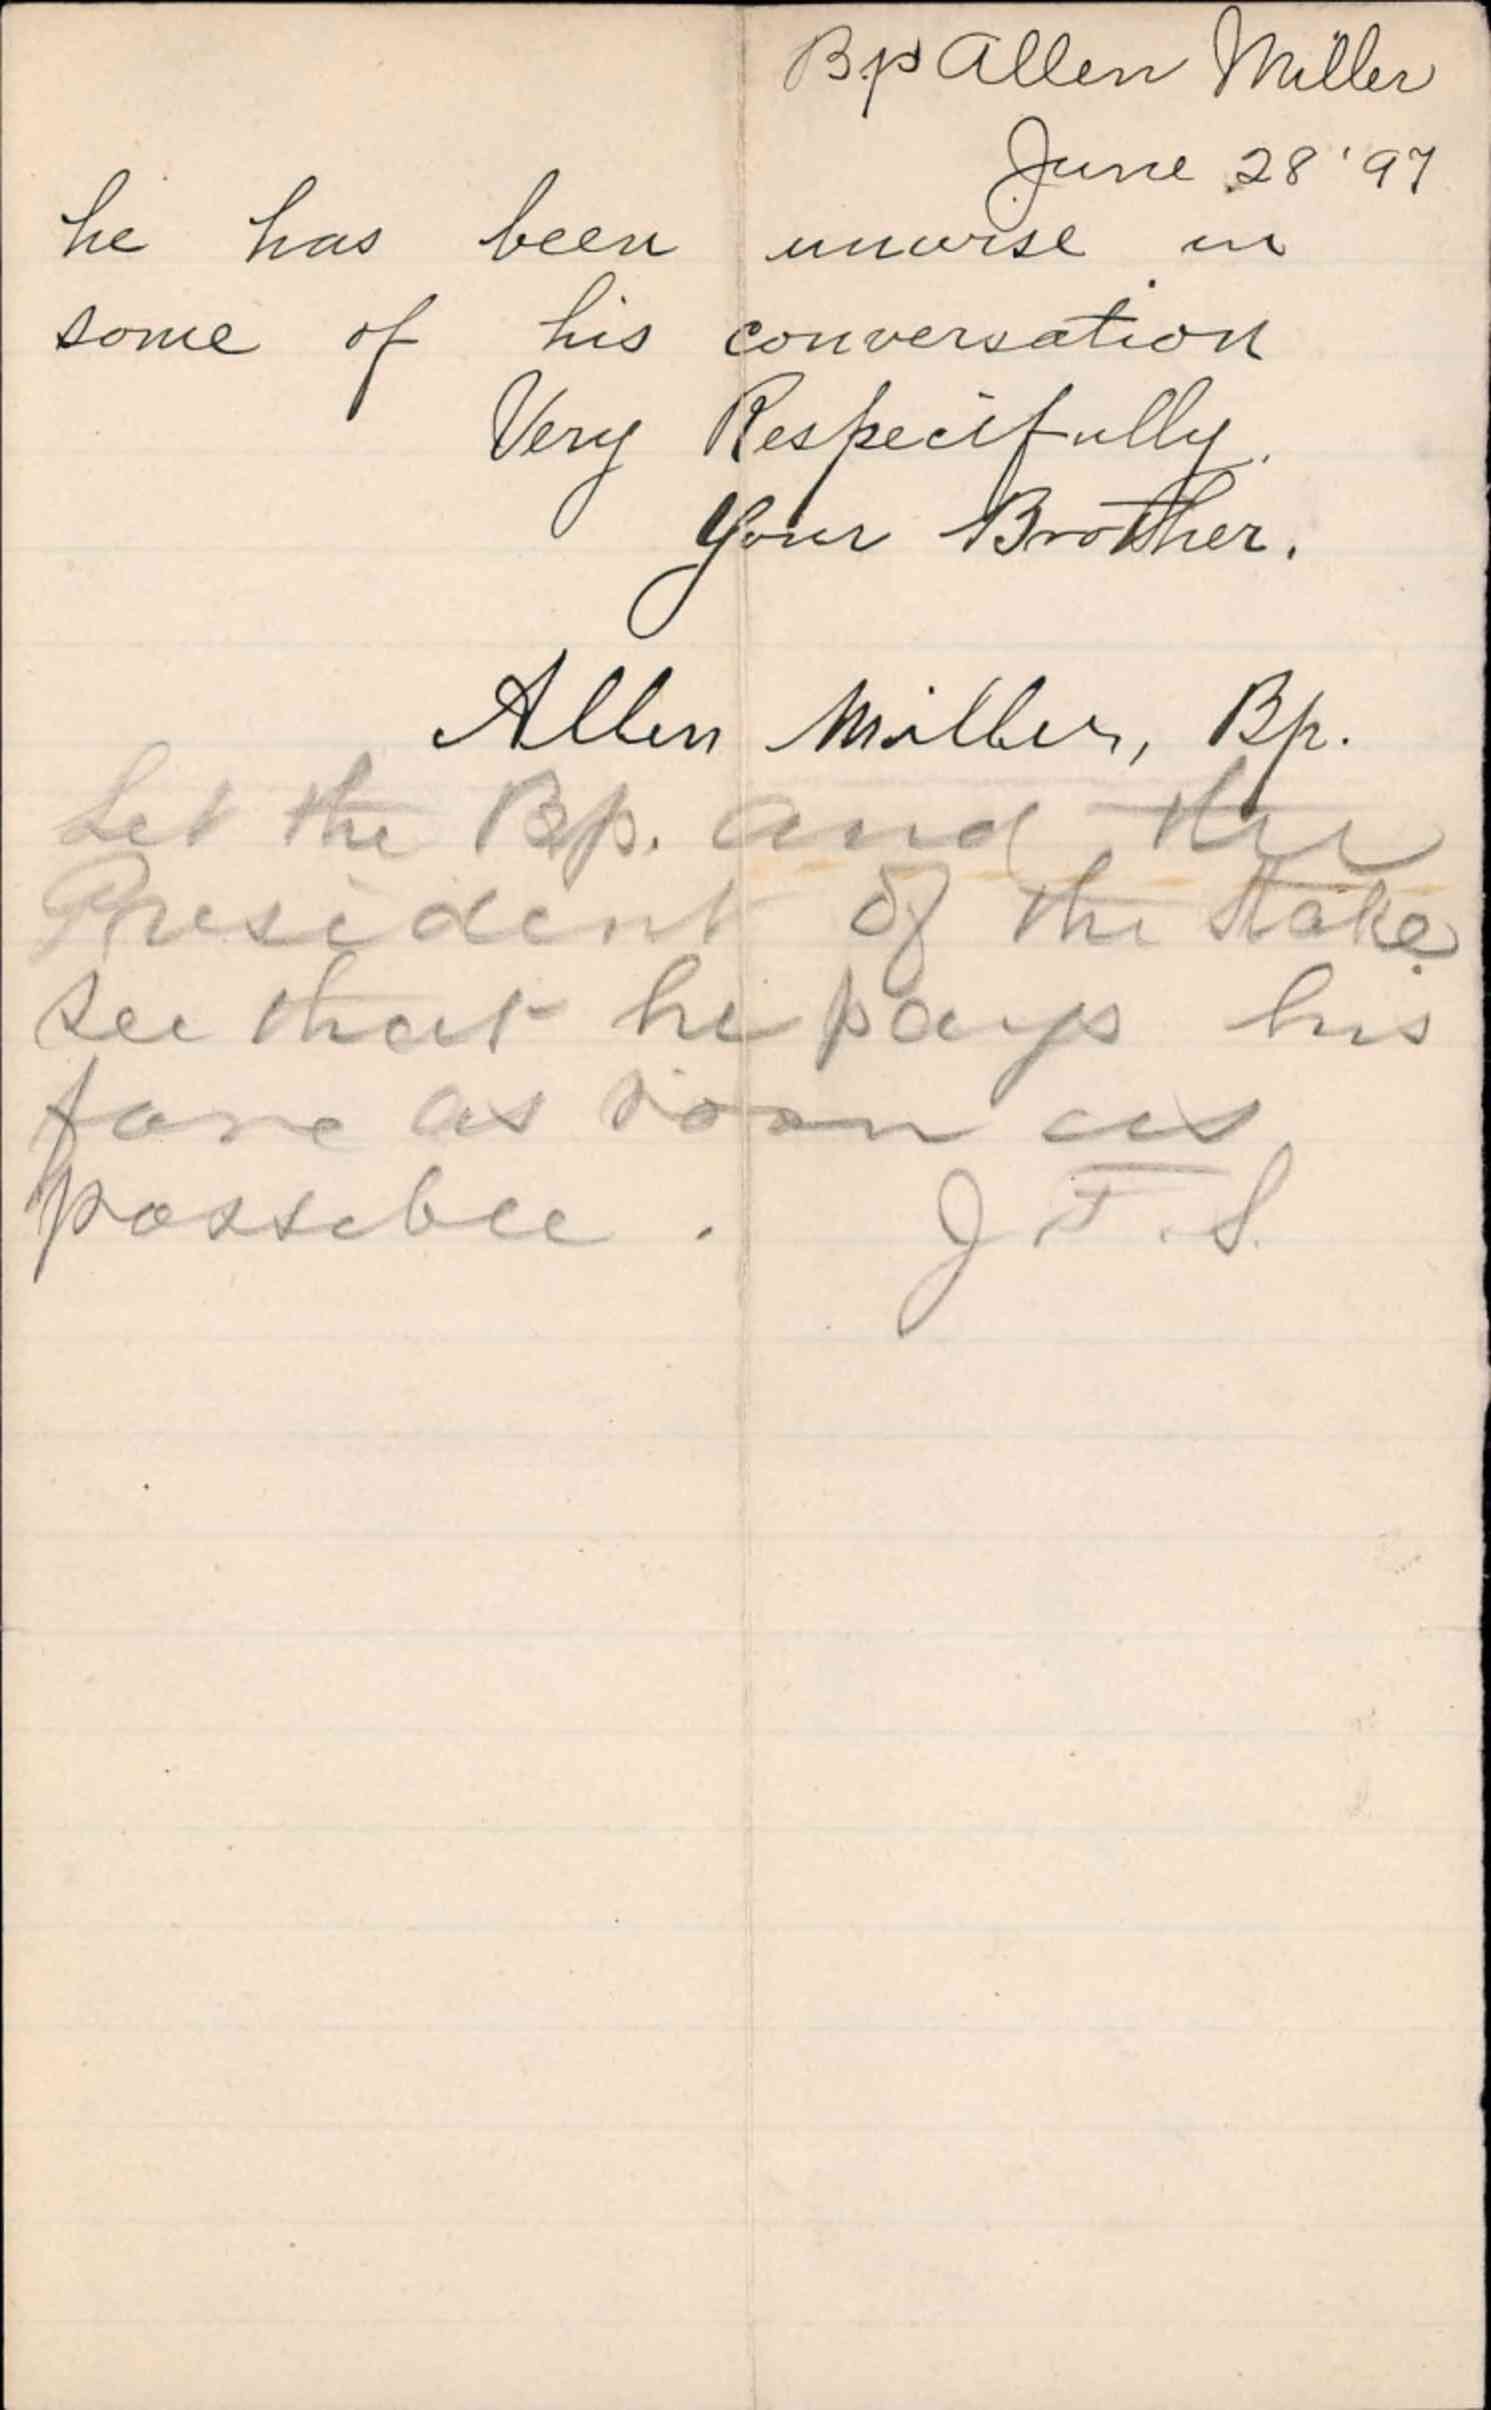 Bp Allen Miller
June 28 '97
he has been unwise in
some of his conversation
Very Respectfully.
Your Brother.
Allen Miller, Bp.
Let the Bp. and the
President of the Stake
see that he pays his
fare as soon as
possible. J F. S.